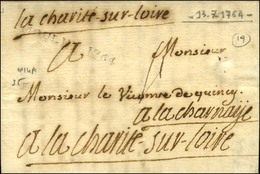 la charité-sur-loire
13-Z-1764
19
A Monsieur
Monsieur le Vicomte de quincy
a la charnaÿe
a la charité-sur-loire